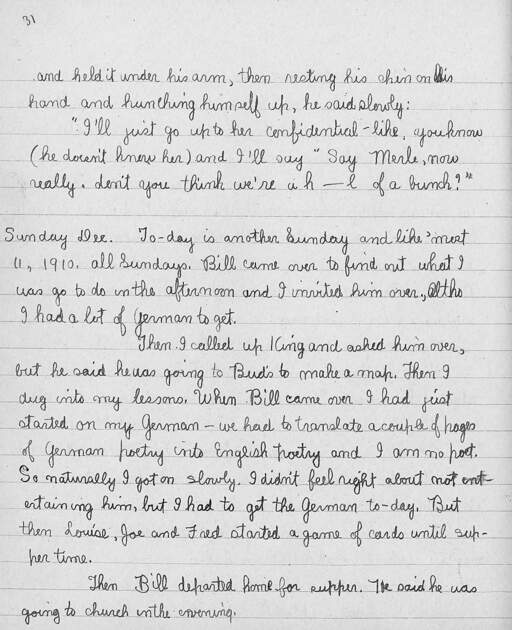 31
and held it under his arm, then resting his chin on his
hand and hunching himself up, he said slowly:
"I'll just go up to her confidential-like, you know
(he doesn't know her) and I'll say "Say Merle, now
really. don't you think we're a h—l of a bunch?"
Sunday Dec. To-day is another Sunday and like most
11, 1910. all Sundays. Bill came over to find out what I
was go to do in the afternoon and I invited him over, altho
I had a lot of German to get.
Then I called up King and asked him over,
but he said he was going to Bud's to make a map. Then I
dug into my lessons. When Bill came over I had just
started on my German – we had to translate a couple of pages
of German poetry into English poetry and I am no poet.
So naturally I got on slowly. I didn't feel right about not ent-
ertaining him, but I had to get the German to-day. But
then Louise, Joe and Fred started a game of cards until sup-
per time.
Then Bill departed home for supper. He said he was
going to church in the evening.